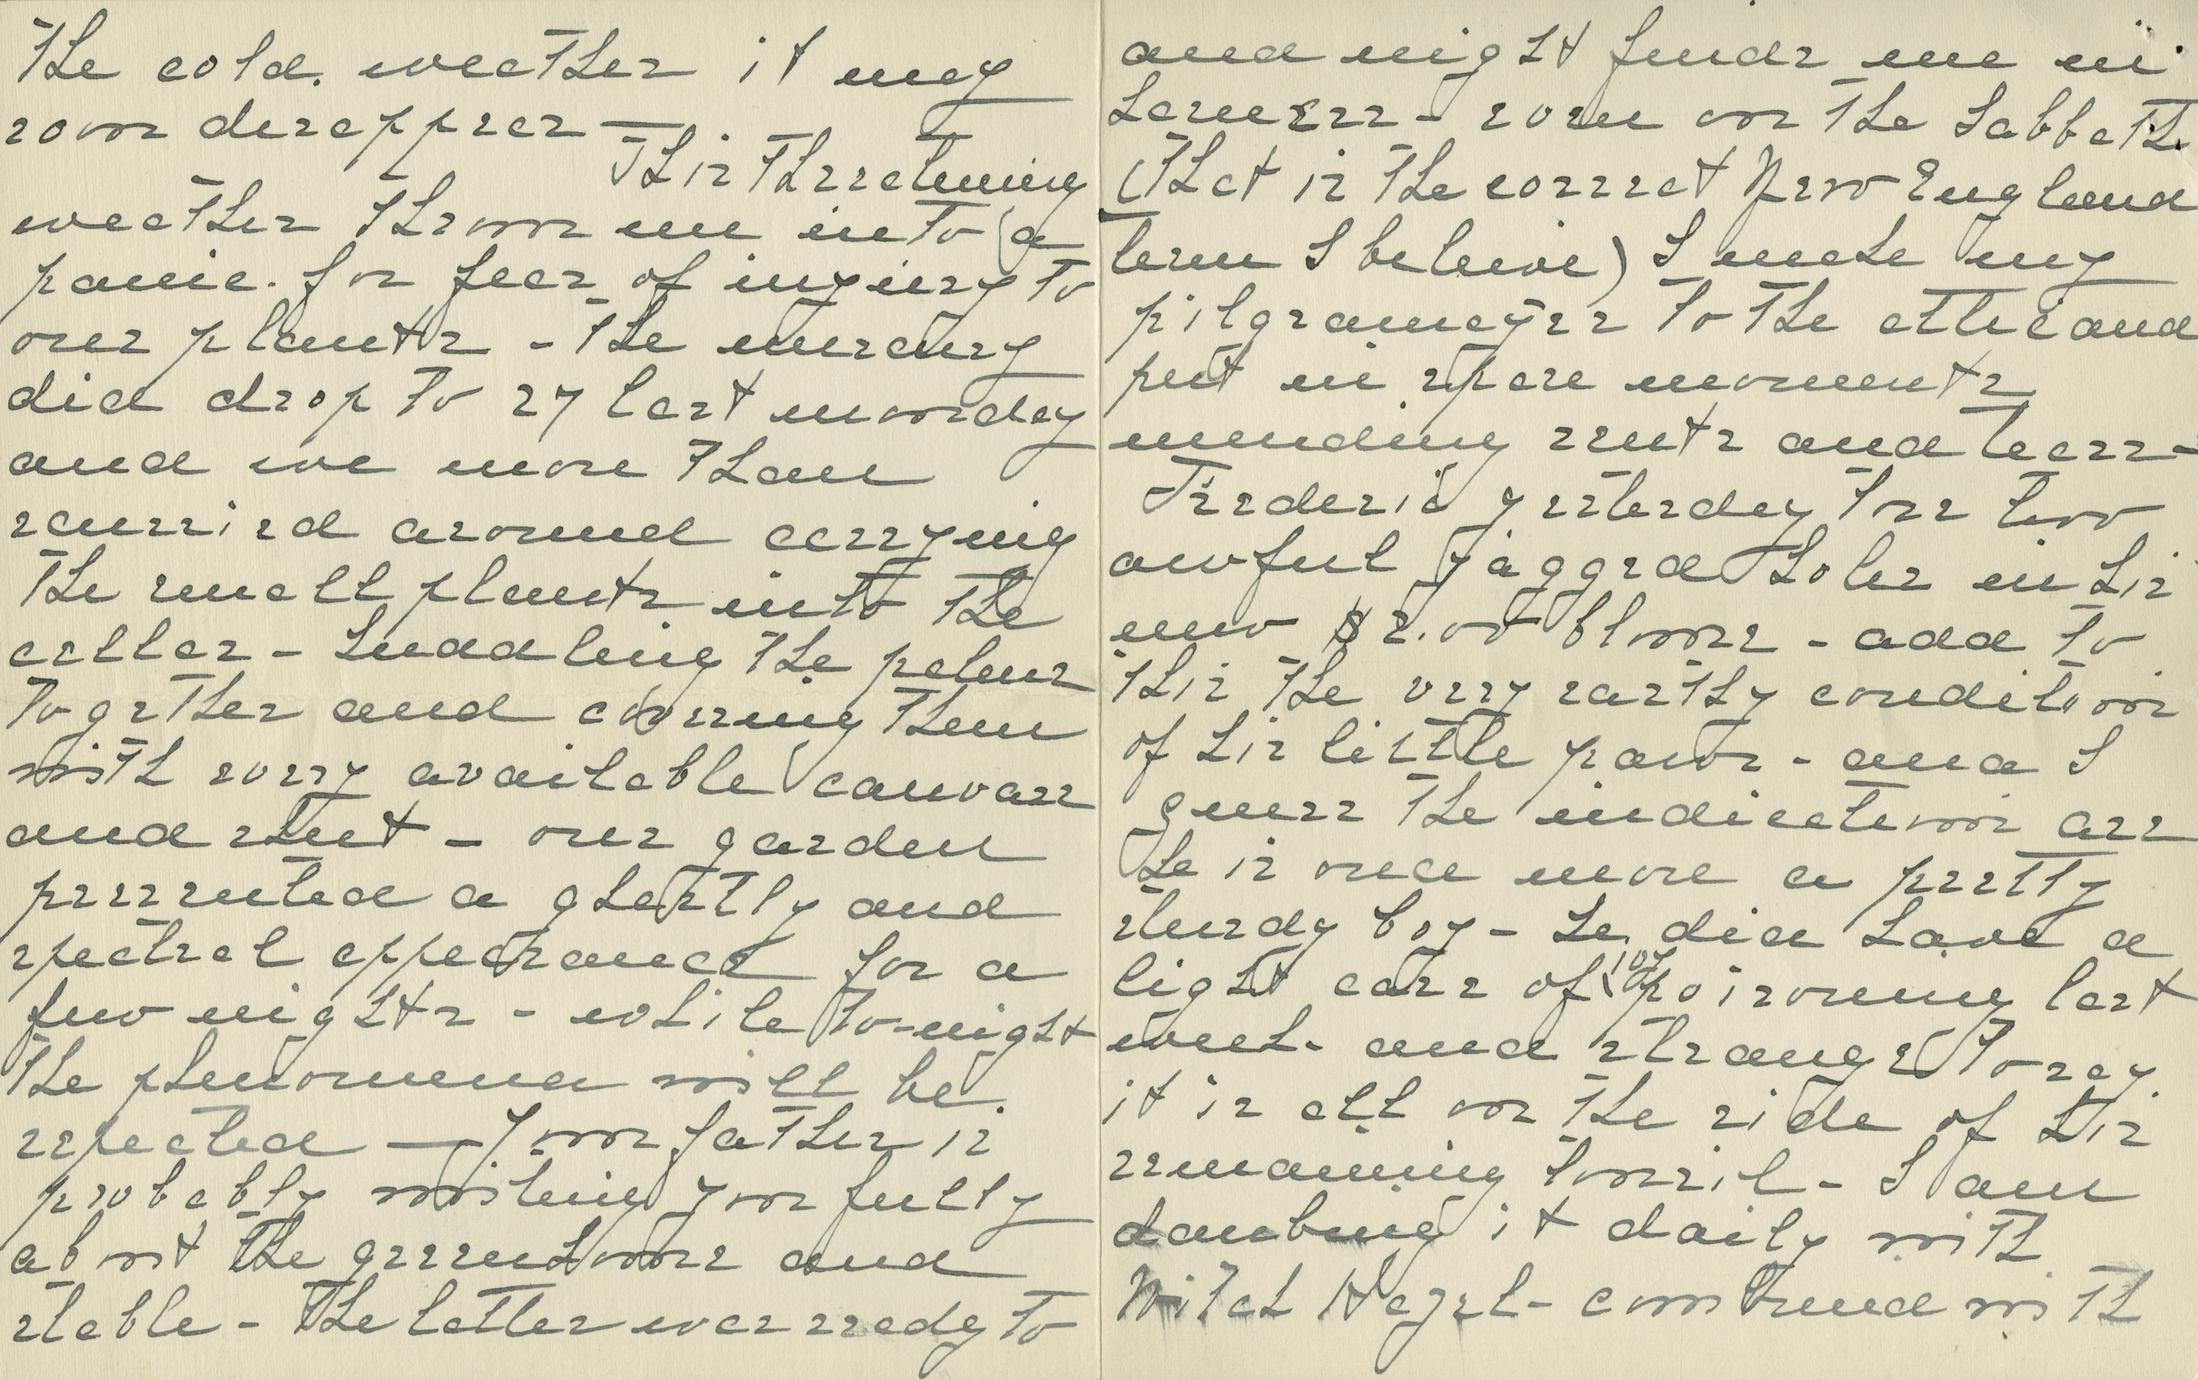 the cold weather it may
soon disappear —
This threatening
weather throws me into a
panic. for fear of injury to
our plants - the mercury
did drop to 27 last monday
and we more than
scurried around carrying
the small plants into the
cellar - huddling the palms
together and covering them
with every available canvass
and sheet - our garden
presented a ghastly and
spectral appearance for a
few nights - while to-night
the phenomena will be
repeated — Your father is
probably writing you fully
about the greenhouse and
stable - the latter was ready to
and night finds me in
harness - even on the Sabbath
(that is the correct New England
term I believe) I make my
pilgrameges to the attic and
put in spare moments
mending rents and tears -
Frederic yesterday tore two
awful jagged holes in his
new $2.00 blouse - add to
this the very earthy condition
of his little paws - and I
guess the indications are
he is once more a pretty
sturdy boy - he did have a
light case of ivy poisoning last
week. and strange to say
it is all on the side of his
remaining tonsil - I am
daubing it daily with
Witch Hazel - combined with